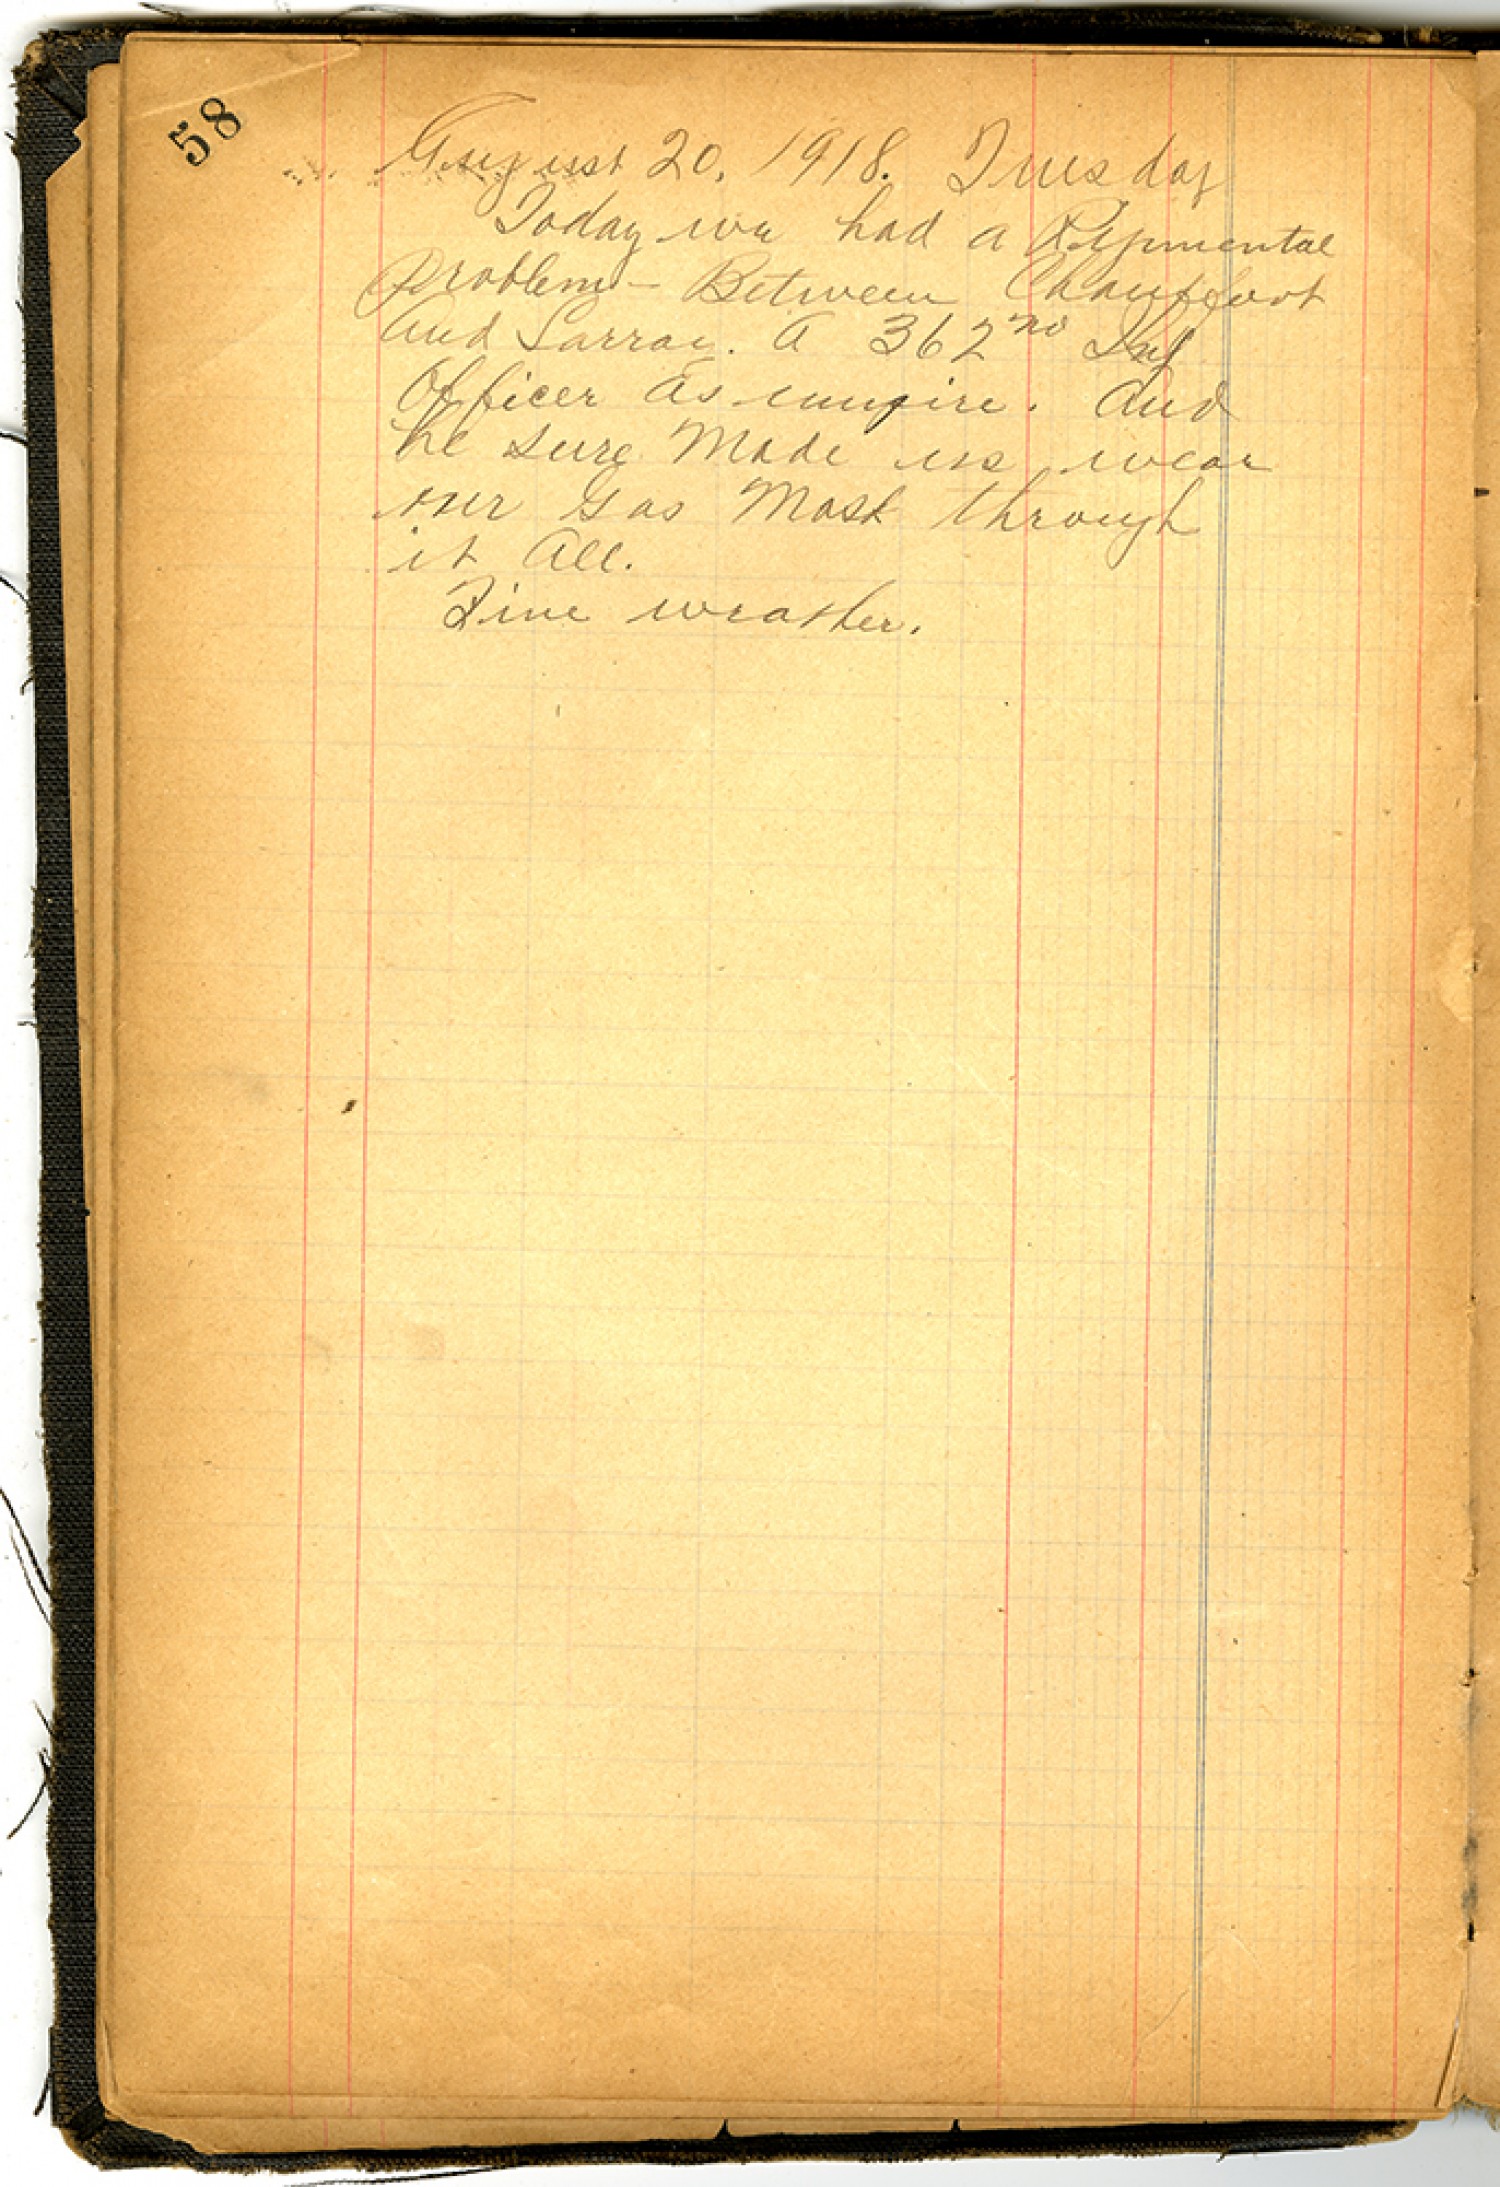 58
August 20, 1918. Tuesday
Today we had a Regimental
problem - Between Chauffourt
And Sarrey. A 362nd Inf
Officer as umpire. And
he sure Made us wear
our Gas Mask through
it All.
Fine weather.